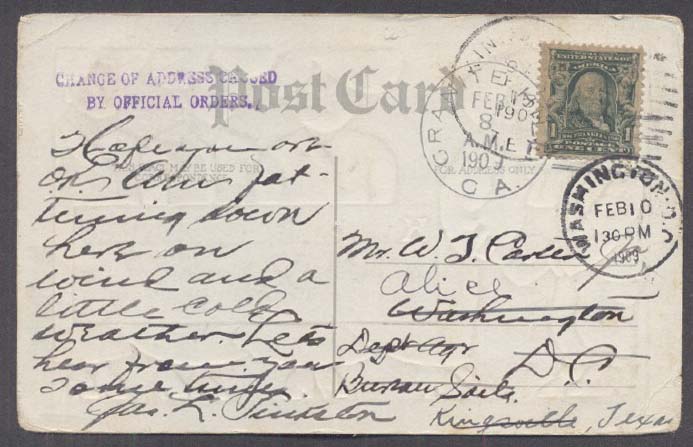 CHANGE OF ADDRESS CAUSED
BY OFFICIAL ORDERS.
Post Card
UNITED STATES OF AMERICA
1 1
WASHINGTON, D.C.
FEB 10
130 PM
1909
FEB 13
8
A.M.
1909
GA.
MAY BE USED FOR
FOR ADDRESS ONLY
Hope you are
OK. Am fat-
tening down
here on
wind and a
little cold
weather. Lets
hear from you
some time.
Jas. L. Pinkston
Mr. W. T. Carter
Alice
Washington
Dept Agr D.C.
Bureau Soils.
Kingsville, Texas